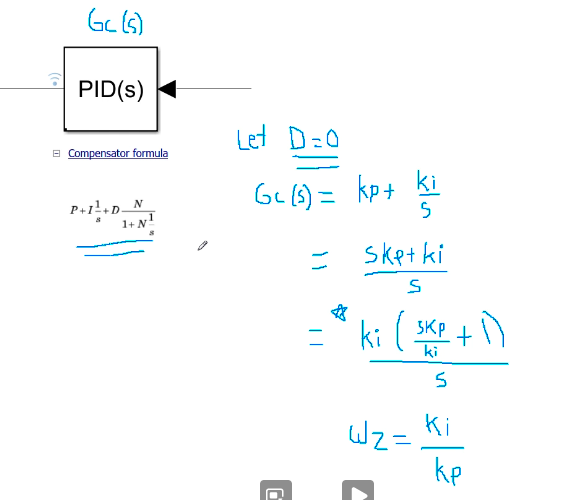 Gc(s)
PID(s)
Compensator formula
P+I 1/s +D N/(1+N 1/s)
Let D=0
Gc(s) = kp + ki/s
= (skp+ki)/s
=* ki(skp/ki + 1)/s
ωz = ki/kp